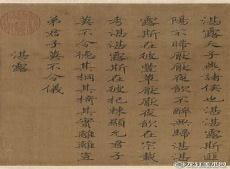 湛露天子燕諸侯也湛湛露斯匪
陽不晞厭厭夜飲不醉無歸湛湛
露斯在彼豐草厭厭夜飲在宗載
考湛湛露斯在彼杞棘顯允君子
莫不令德其桐其椅其實離離豈
弟君子莫不令儀
湛露